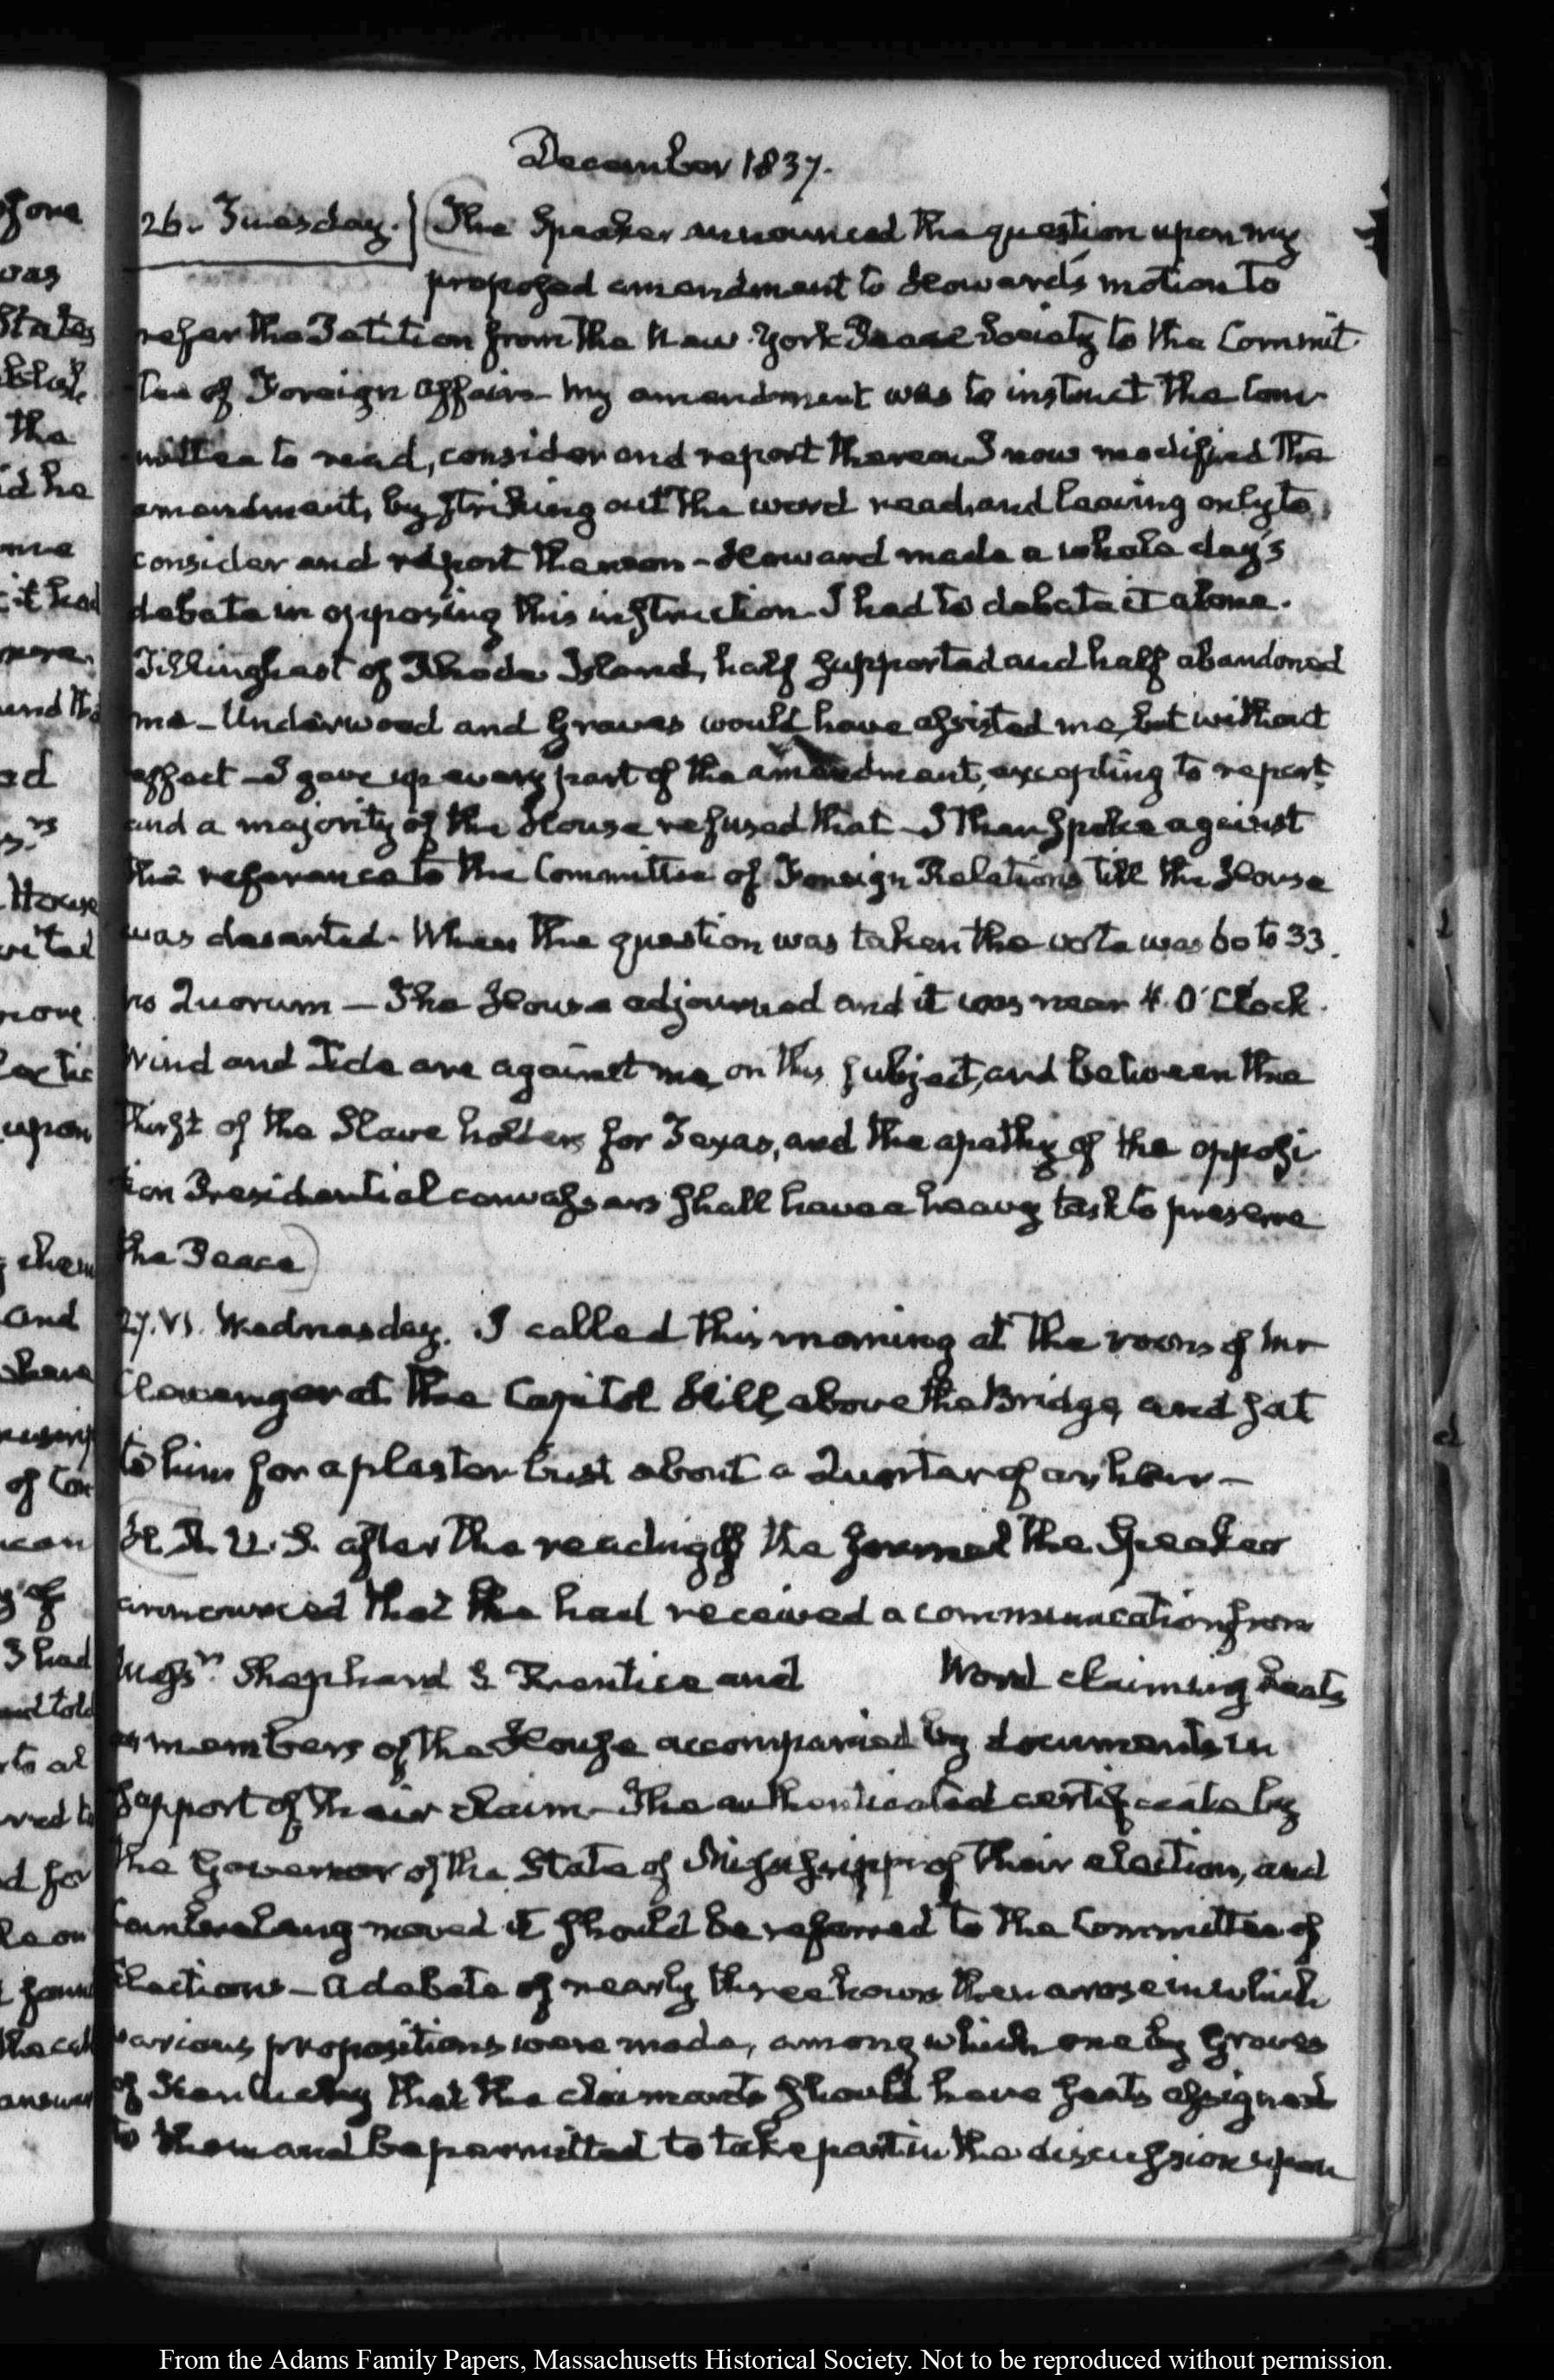 December 1837.
26. Tuesday. The Speaker announced the question upon my
proposed amendment to Howard's motion to
refer the Petition from the New-York Peace Society to the Commit
tee of Foreign Affairs. My amendment was to instruct the Com
mittee to read, consider and report thereon I now modified the
amendment, by striking out the word read, and leaving only to
consider and report thereon - Howard made a whole day's
debate in opposing this instruction. I had to debate it alone.
Tillinghast of Rhode Island, half supported and half abandoned
me - Underwood and Graves would have assisted me, but without
effect - I gave up every part of the amendment, excepting to report,
and a majority of the House refused that - I then spoke against
the reference to the Committee of Foreign Relations till the House
was deserted - When the question was taken the vote was 60 to 33.
no Quorum — The House adjourned and it was near 4. O'Clock.
Wind and Tide are against me, on this subject, and between the
thirst of the Slave holders for Texas, and the apathy of the opposi
tion Presidential canvassers shall have a heavy task to preserve
the Peace
27. VI. Wednesday. I called this morning at the room of Mr
Clevenger at the Capitol Hill, above the Bridge, and sat
to him for a plaster bust about a Quarter of an hour —
H. R. U. S. after the reading of the Journal the Speaker
announced that he had received a communication from
Messrs. Shephard S Prentice and Word claiming Seats
as members of the House accompanied by documents in
support of their claim - The authenticated certificate by
the Governor of the State of Mississippi of their election, and
moved it should be referred to the Committee of
Elections - A debate of nearly three hours then arose in which
various propositions were made, among which one by Graves
of Kentucky that the claimants should have seats assigned
to them and be permitted to take part in the discussion upon
one
was
States
the
id he
it had
and the
ed
House
more
upon
them
and
have
of Con
I had
and told
to al
ved to
d for
answer
From the Adams Family Papers, Massachusetts Historical Society. Not to be reproduced without permission.